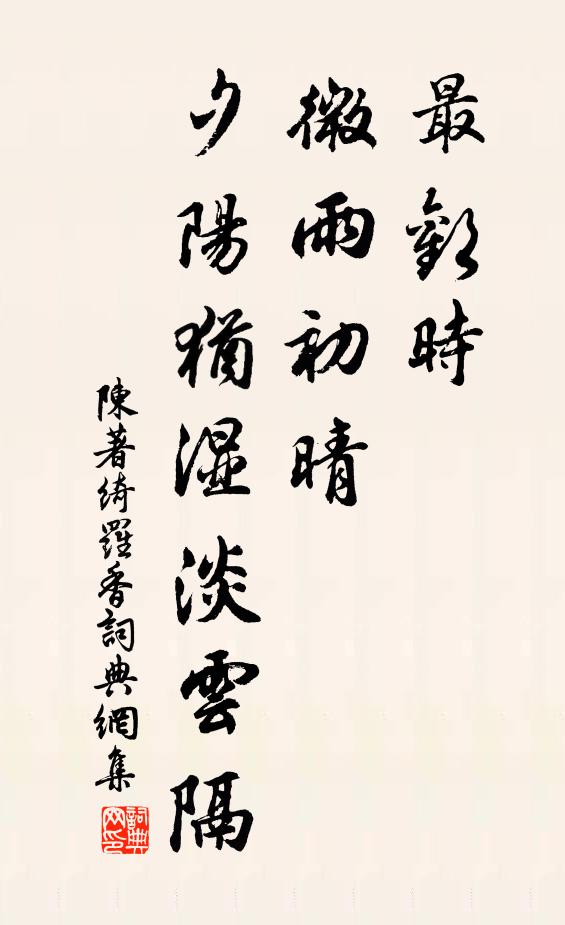 最歡時
微雨初晴
夕陽猶湿淡雲隔
陳著綺羅香詞典網集
詞典网印